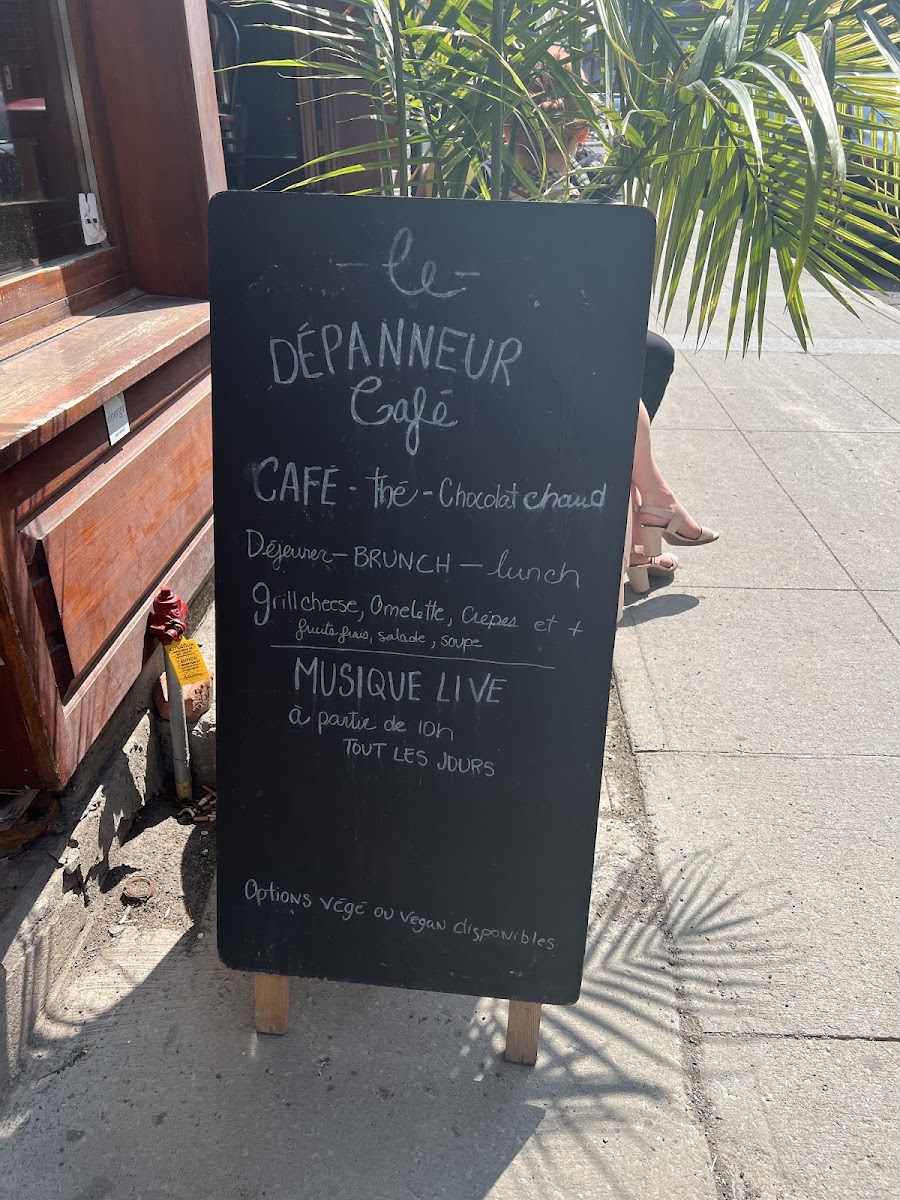 - le -
DÉPANNEUR
Café
CAFÉ - thé - Chocolat chaud
Déjeuner - BRUNCH - lunch
grill cheese, Omelette, Crêpes et +
fruits frais, salade, soupe
MUSIQUE LIVE
à partir de 10h
TOUT LES JOURS
Options végé ou vegan disponibles